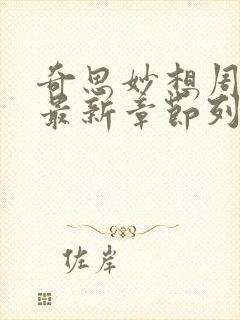 奇思妙想周
最新章节列
佐岸